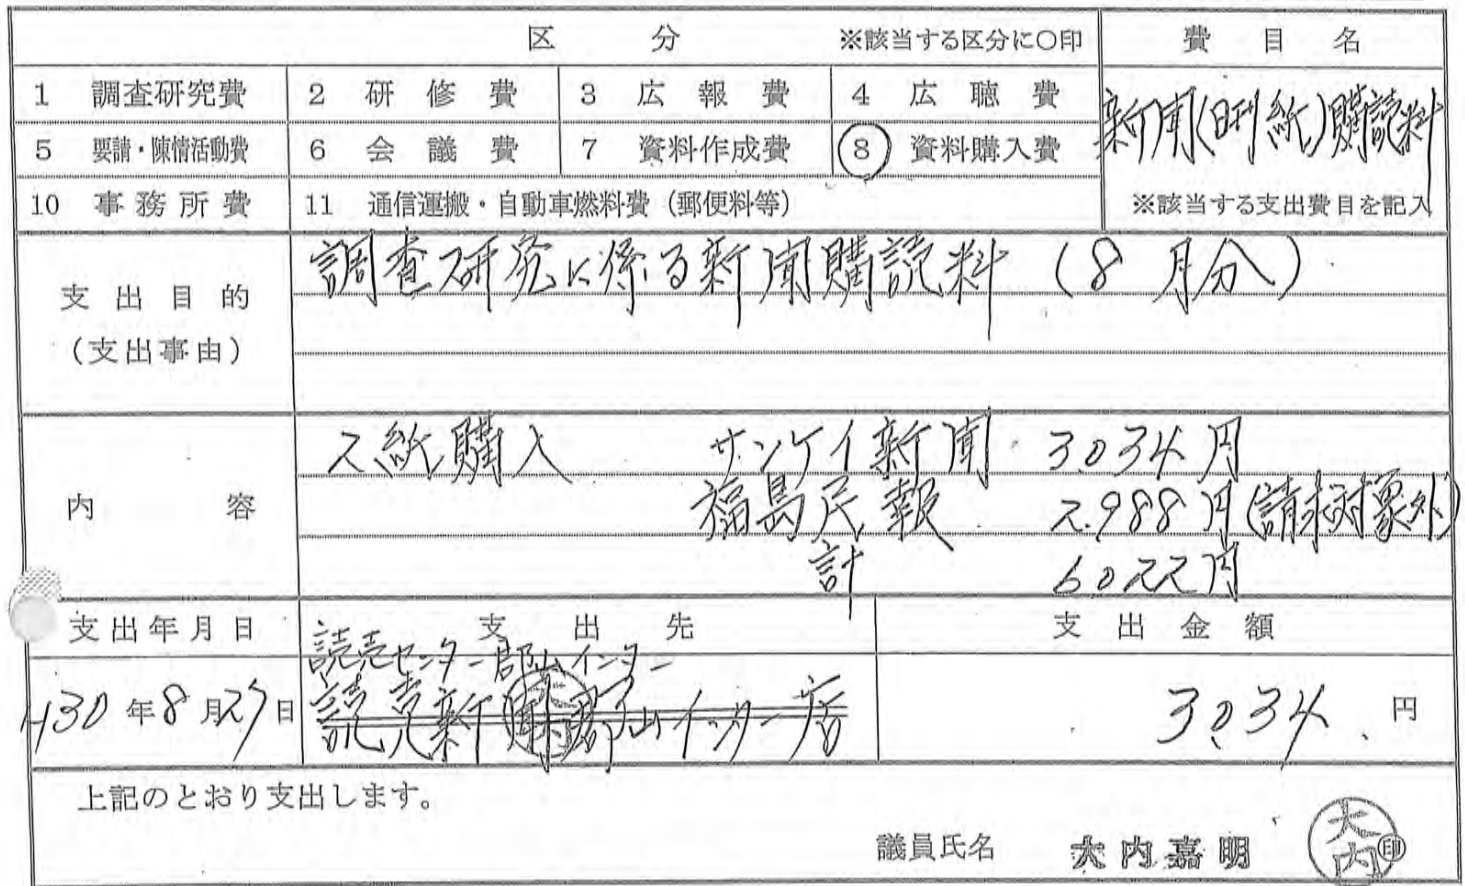 区 分 ※該当する区分に〇印 費 目 名
1 調査研究費 2 研 修 費 3 広 報 費 4 広 聴 費
新聞(日刊紙)購読料
5 要請・陳情活動費 6 会 議 費 7 資料作成費 8 資料購入費
10 事務所費 11 通信運搬・自動車燃料費（郵便料等） ※該当する支出費目を記入
支出目的
（支出事由）
調査研究に係る新聞購読料 (8 月分)
内 容
2紙購入 サンケイ新聞 3,034円
福島民報 2,988円(請求対象外)
計 6,022円
支出年月日 支 出 先 支 出 金 額
読売センター郡山インター
H30年8月27日 読売新聞郡山インター店 3,034 円
上記のとおり支出します。
議員氏名 大内嘉明 大内 印